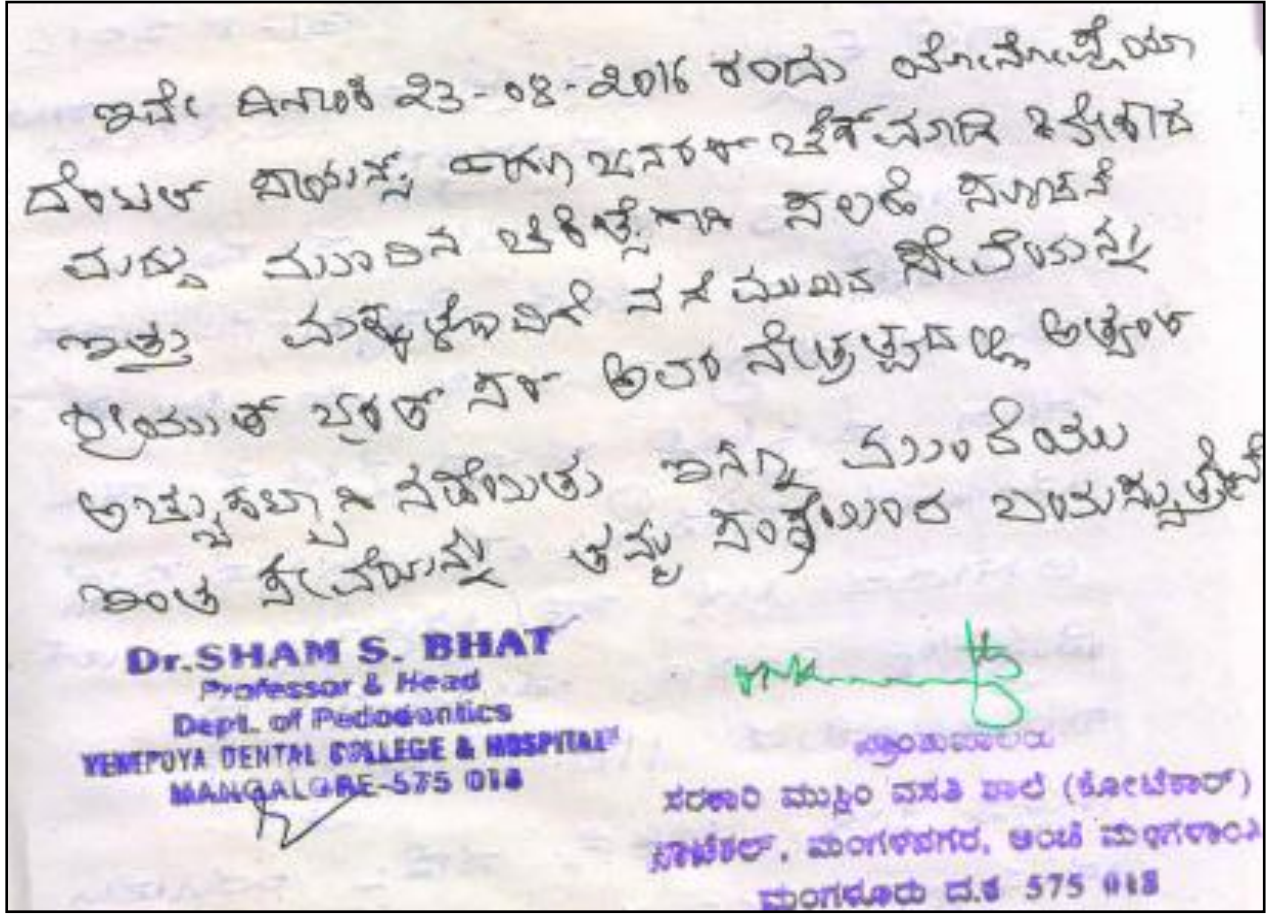 ಇವೇ ದಿನಾಂಕ 23-08-2016 ರಂದು ಯೇನೇಪೋಯಾ
ದೆಂಟಲ್ ಸಾಯನ್ಸ್ ಹಾಗೂ ಜನರಲ್ ಚೆಕ್ ಮಾಡಿ
ಮದ್ದು ಸಲಹೆ ಸೂಚನೆ
ಇತ್ತು ಮಕ್ಕಳೊಂದಿಗೆ ನಗೆ ಮುಖದ ಸೇವೆಯನ್ನು
ಶ್ರೀಯುತ್ ಭರತ್ ಸರ್ ಅವರ ನೇತ್ರತ್ವದಲ್ಲಿ ಅತ್ಯಂತ
ಅಚ್ಚುಕಟ್ಟಾಗಿ ನಡೆಯಿತು ಇನ್ನೂ ಮುಂದೆಯು
ಇಂತ ಸೇವೆಯನ್ನು ತಮ್ಮ ಸಂಸ್ಥೆಯಿಂದ ಬಯಸ್ಸುತ್ತೇವೆ
Dr.SHAM S. BHAT
Professor & Head
Dept. of Pedodontics
YENEPOYA DENTAL COLLEGE & HOSPITAL
MANGALORE-575 018
ಪ್ರಾಂಶುಪಾಲರು
ಸರಕಾರಿ ಮುಸ್ಲಿಂ ವಸತಿ ಶಾಲೆ (ಕೋಟೆಕಾರ್)
ನಾಟೆಕಲ್, ಮಂಗಳನಗರ, ಅಂಚೆ ಮಂಗಳಾಂತಿ
ಮಂಗಳೂರು ದ.ಕ 575 018